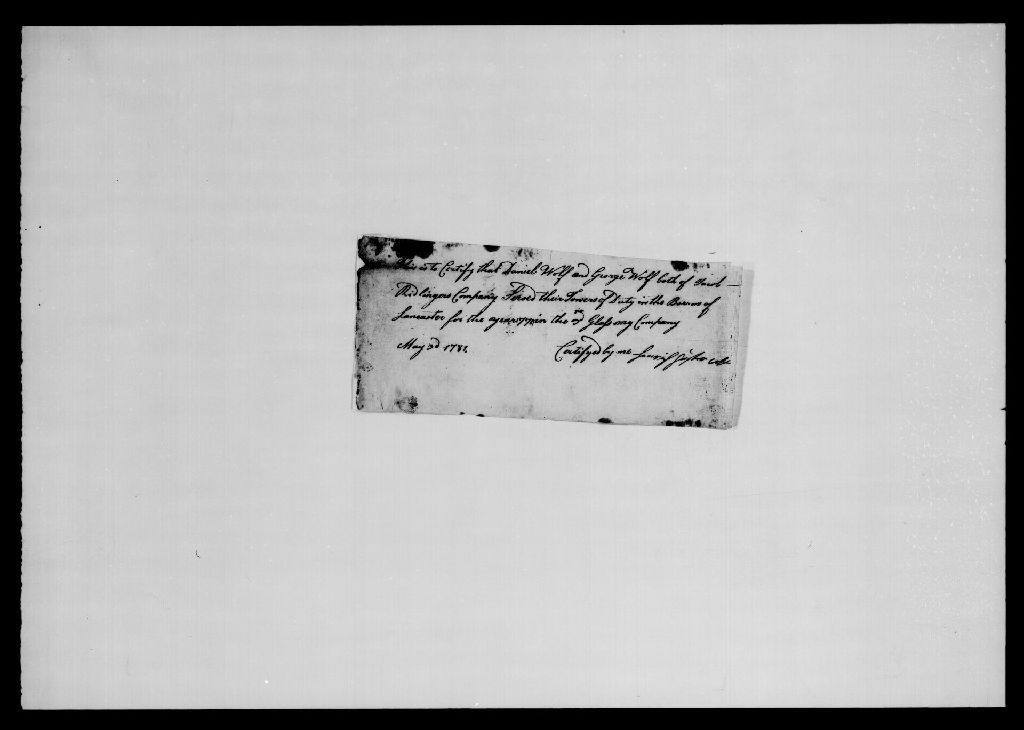 This is to Certify that Daniel Wolf and George Wolf both of Jacob
Ridlingers Company Served their Towers of Duty in the Barras of
Lancaster for the year 1777 in the 2nd Class my Company
May 3d 1781 Certifyed by me